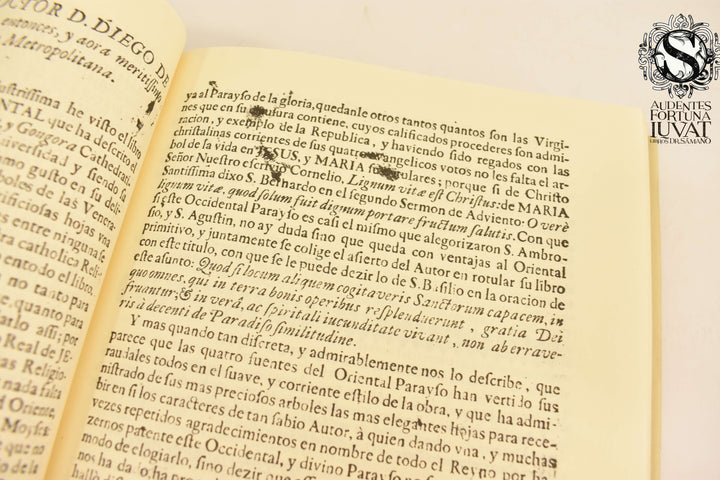 OCTOR D. DIEGO DE
entonces, y aora meritissimo
Metropolitana.
ustrissima he visto el libro
ENTAL que ha descrito el
y Gongora Cathedrati-
iversidad, y siendo su
gusto en su
boles de las Venera-
ificiosas hojas vna
entre ninguna se
ra catholica Reli-
en todo el libro.
no tanto para
quanto para
arlo assi; por
Real de JE-
as Religio-
nada falta
Oriente,
Moyse
ya al Parayso de la gloria, quedanle otros tantos quantos son las Virgi-
nes que en su clausura contiene, cuyos calificados procederes son admi-
racion, y exemplo de la Republica, y haviendo sido regados con las
christalinas corrientes de sus quatro evangelicos votos no les falta el ar-
bol de la vida en JESUS, y MARIA sus titulares; porque si de Christo
Señor Nuestro escrivio Cornelio, Lignum vitæ est Christus: de MARIA
Santissima dixo S. Bernardo en el segundo Sermon de Adviento: O verè
lignum vitæ, quod solum fuit dignum portare fructum salutis. Con que
si este Occidental Parayso es casi el mismo que alegorizaron S. Ambro-
sio, y S. Agustin, no ay duda sino que queda con ventajas al Oriental
primitivo, y juntamente se colige el asierto del Autor en rotular su libro
con este titulo, con que se le puede dezir lo de S. Basilio en la oracion de
este asunto: Quod si locum aliquem cogitaveris Sanctorum capacem, in
quo omnes, qui in terra bonis operibus resplenduerunt, gratia Dei
fruantur, & in verá, ac spiritali iucunditate vivant, non aberrave-
ris à decenti de Paradiso similitudine.
Y mas quando tan discreta, y admirablemente nos lo describe, que
parece que las quatro fuentes del Oriental Parayso han vertido sus
raudales todos en el suave, y corriente estilo de la obra, y que ha admi-
nistrado de sus mas preciosos arboles las mas elegantes hojas para rece-
bir en si los caracteres de tan sabio Autor, à quien dando vna, y muchas
vezes repetidos agradecimientos en nombre de todo el Reyno por ha-
zernos patente este Occidental, y divino Parayso no
modo de elogiarlo, sino dezir que
nos ha dado, ha
hallò
S
AUDENTES
FORTUNA
IUVAT
LIBROS DR. SÁMANO